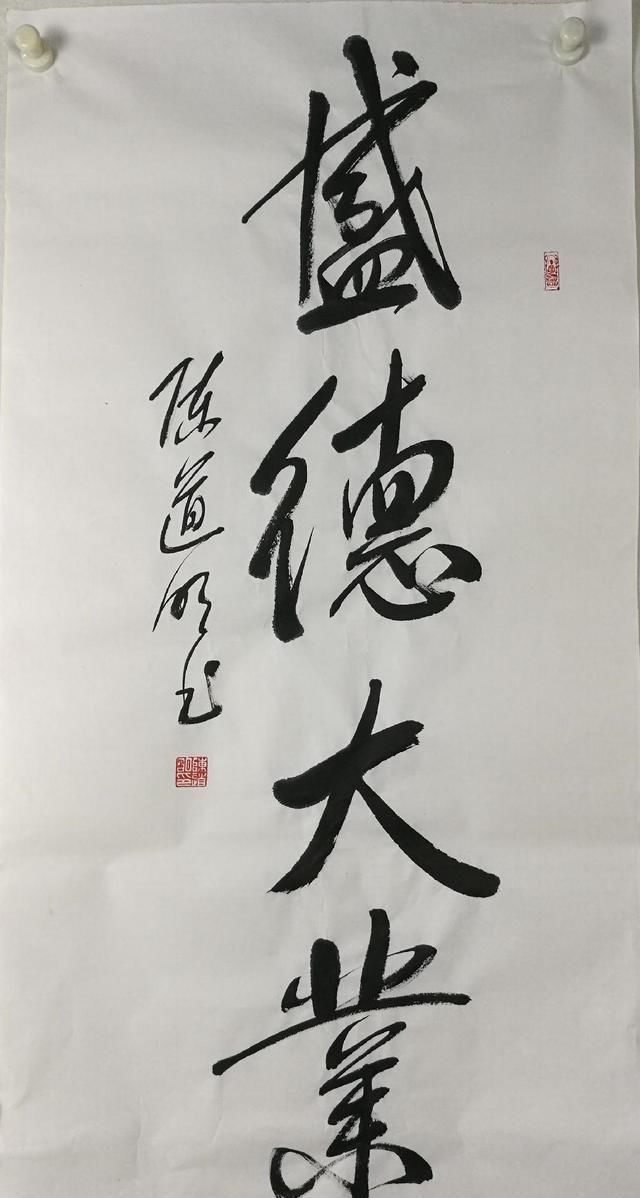 盛德大業
陈道明书